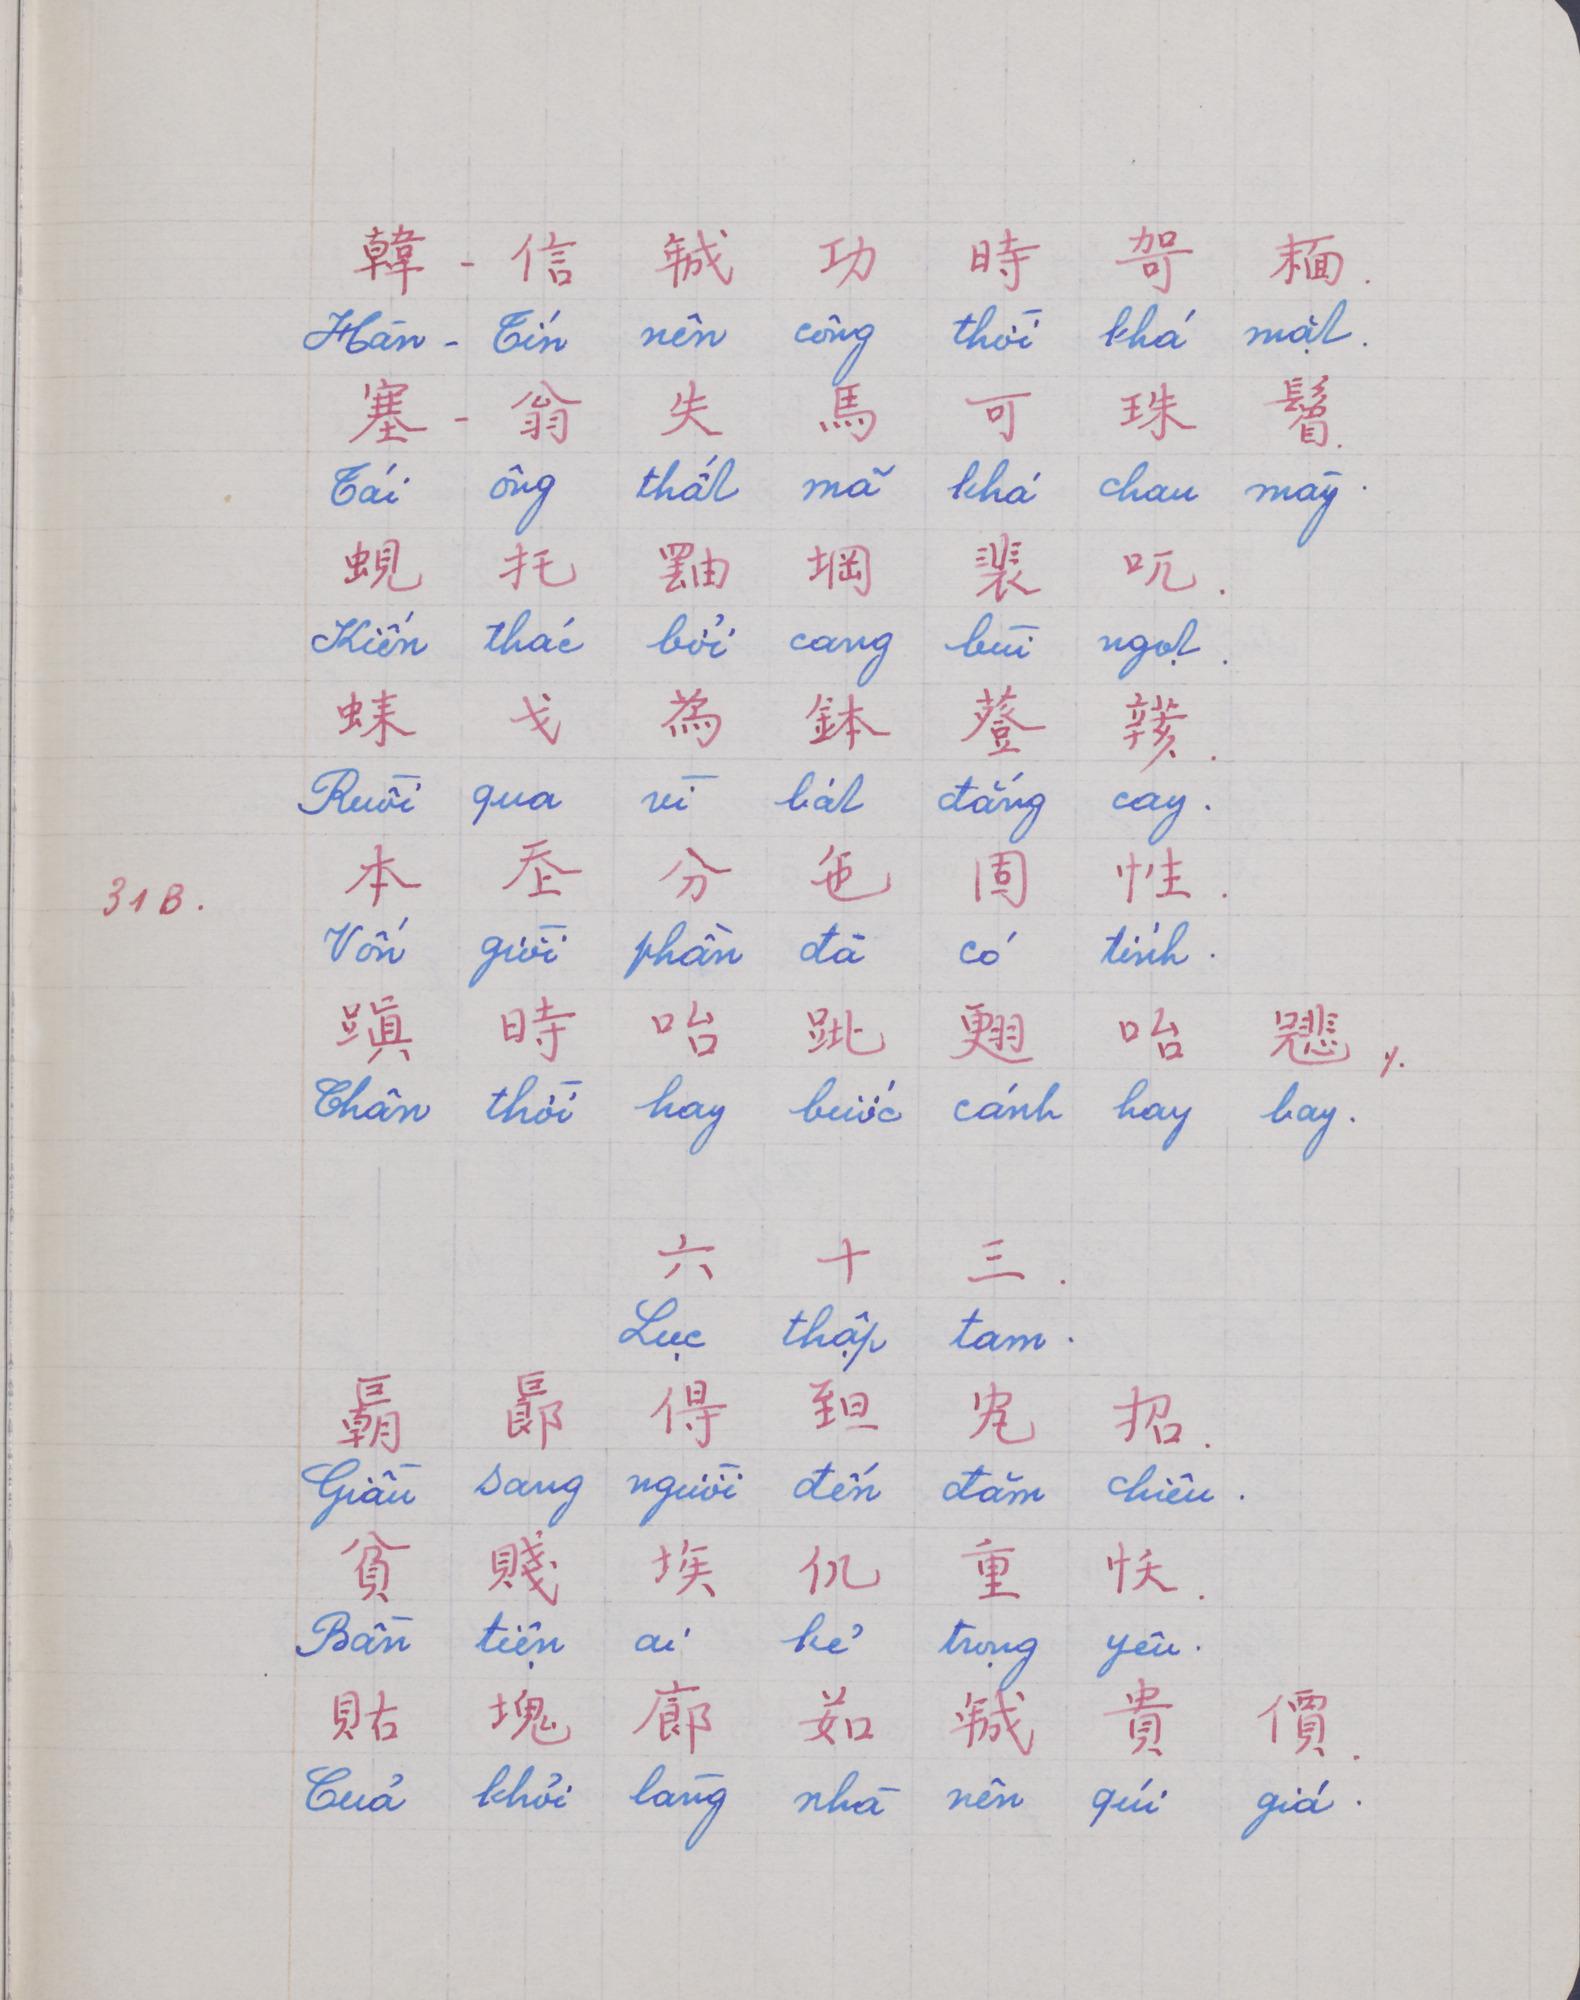 韓 - 信 𢧚 功 時 哿 𩈘.
Hàn - Tín nên công thời khá mặt.
塞 - 翁 失 馬 可 珠 𩯁.
Tái ông thất mã khá chau mày.
蜆 托 𪽝 堈 裴 吭.
Kiến thác bởi cang bùi ngọt.
蝳 戈 為 鉢 蔆 𨐮.
Ruồi qua vì bát đắng cay.
本 𡗶 分 㐌 固 性.
31B.
Vốn giời phần đã có tính.
蹎 時 咍 跐 翅 咍 𢒎 ⁒.
Chân thời hay bước cánh hay bay.
六 十 三.
Lục thập tam.
𢀭 𢀨 得 𦤾 㐌 招.
Giầu sang người đến đăm chiêu.
貧 賤 埃 仉 重 㤇.
Bần tiện ai kẻ trọng yêu.
貼 塊 廊 茹 𢧚 貴 價.
Cuả khỏi làng nhà nên qúi giá.